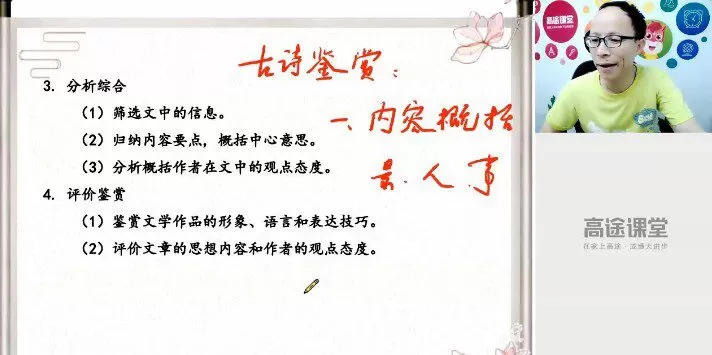 古诗鉴赏：
3. 分析综合
(1) 筛选文中的信息。
一、内容概括
(2) 归纳内容要点，概括中心意思。
(3) 分析概括作者在文中的观点态度。
景、人、事
4. 评价鉴赏
(1) 鉴赏文学作品的形象、语言和表达技巧。
(2) 评价文章的思想内容和作者的观点态度。
高途课堂
高途课堂
在家上高途·成绩大进步